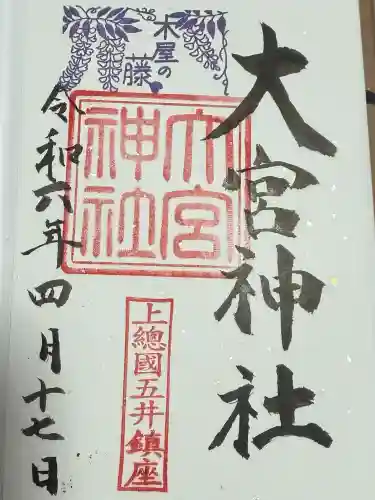 大宮神社
木屋の
藤
大宮
神社
上總國五井鎮座
令和六年四月十七日